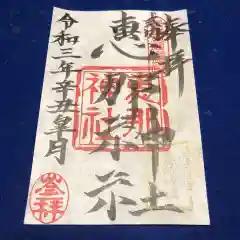 奉拝
惠那神社
恵那
神社
令和三年辛丑皐月
登拝